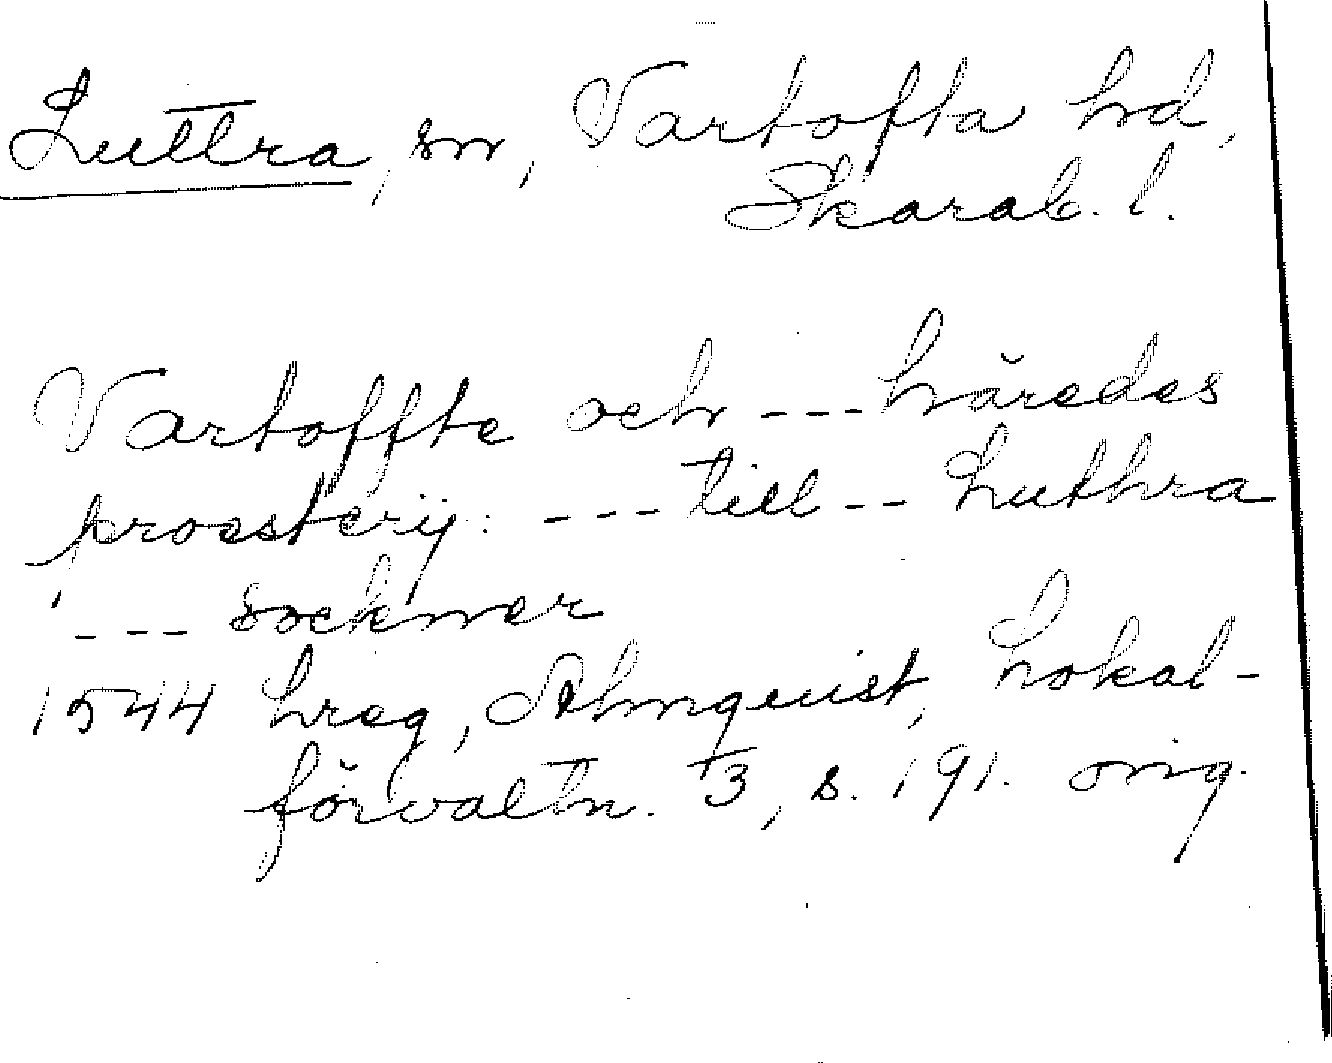 Luttra, sn, Vartofta hd,
Skarab. l.
Vartoffte och --- häredes
proesterij: --- till -- Luthra
--- sockner
1544 Lreg, Almquist, Lokal-
förvaltn. 3, s. 191. orig.